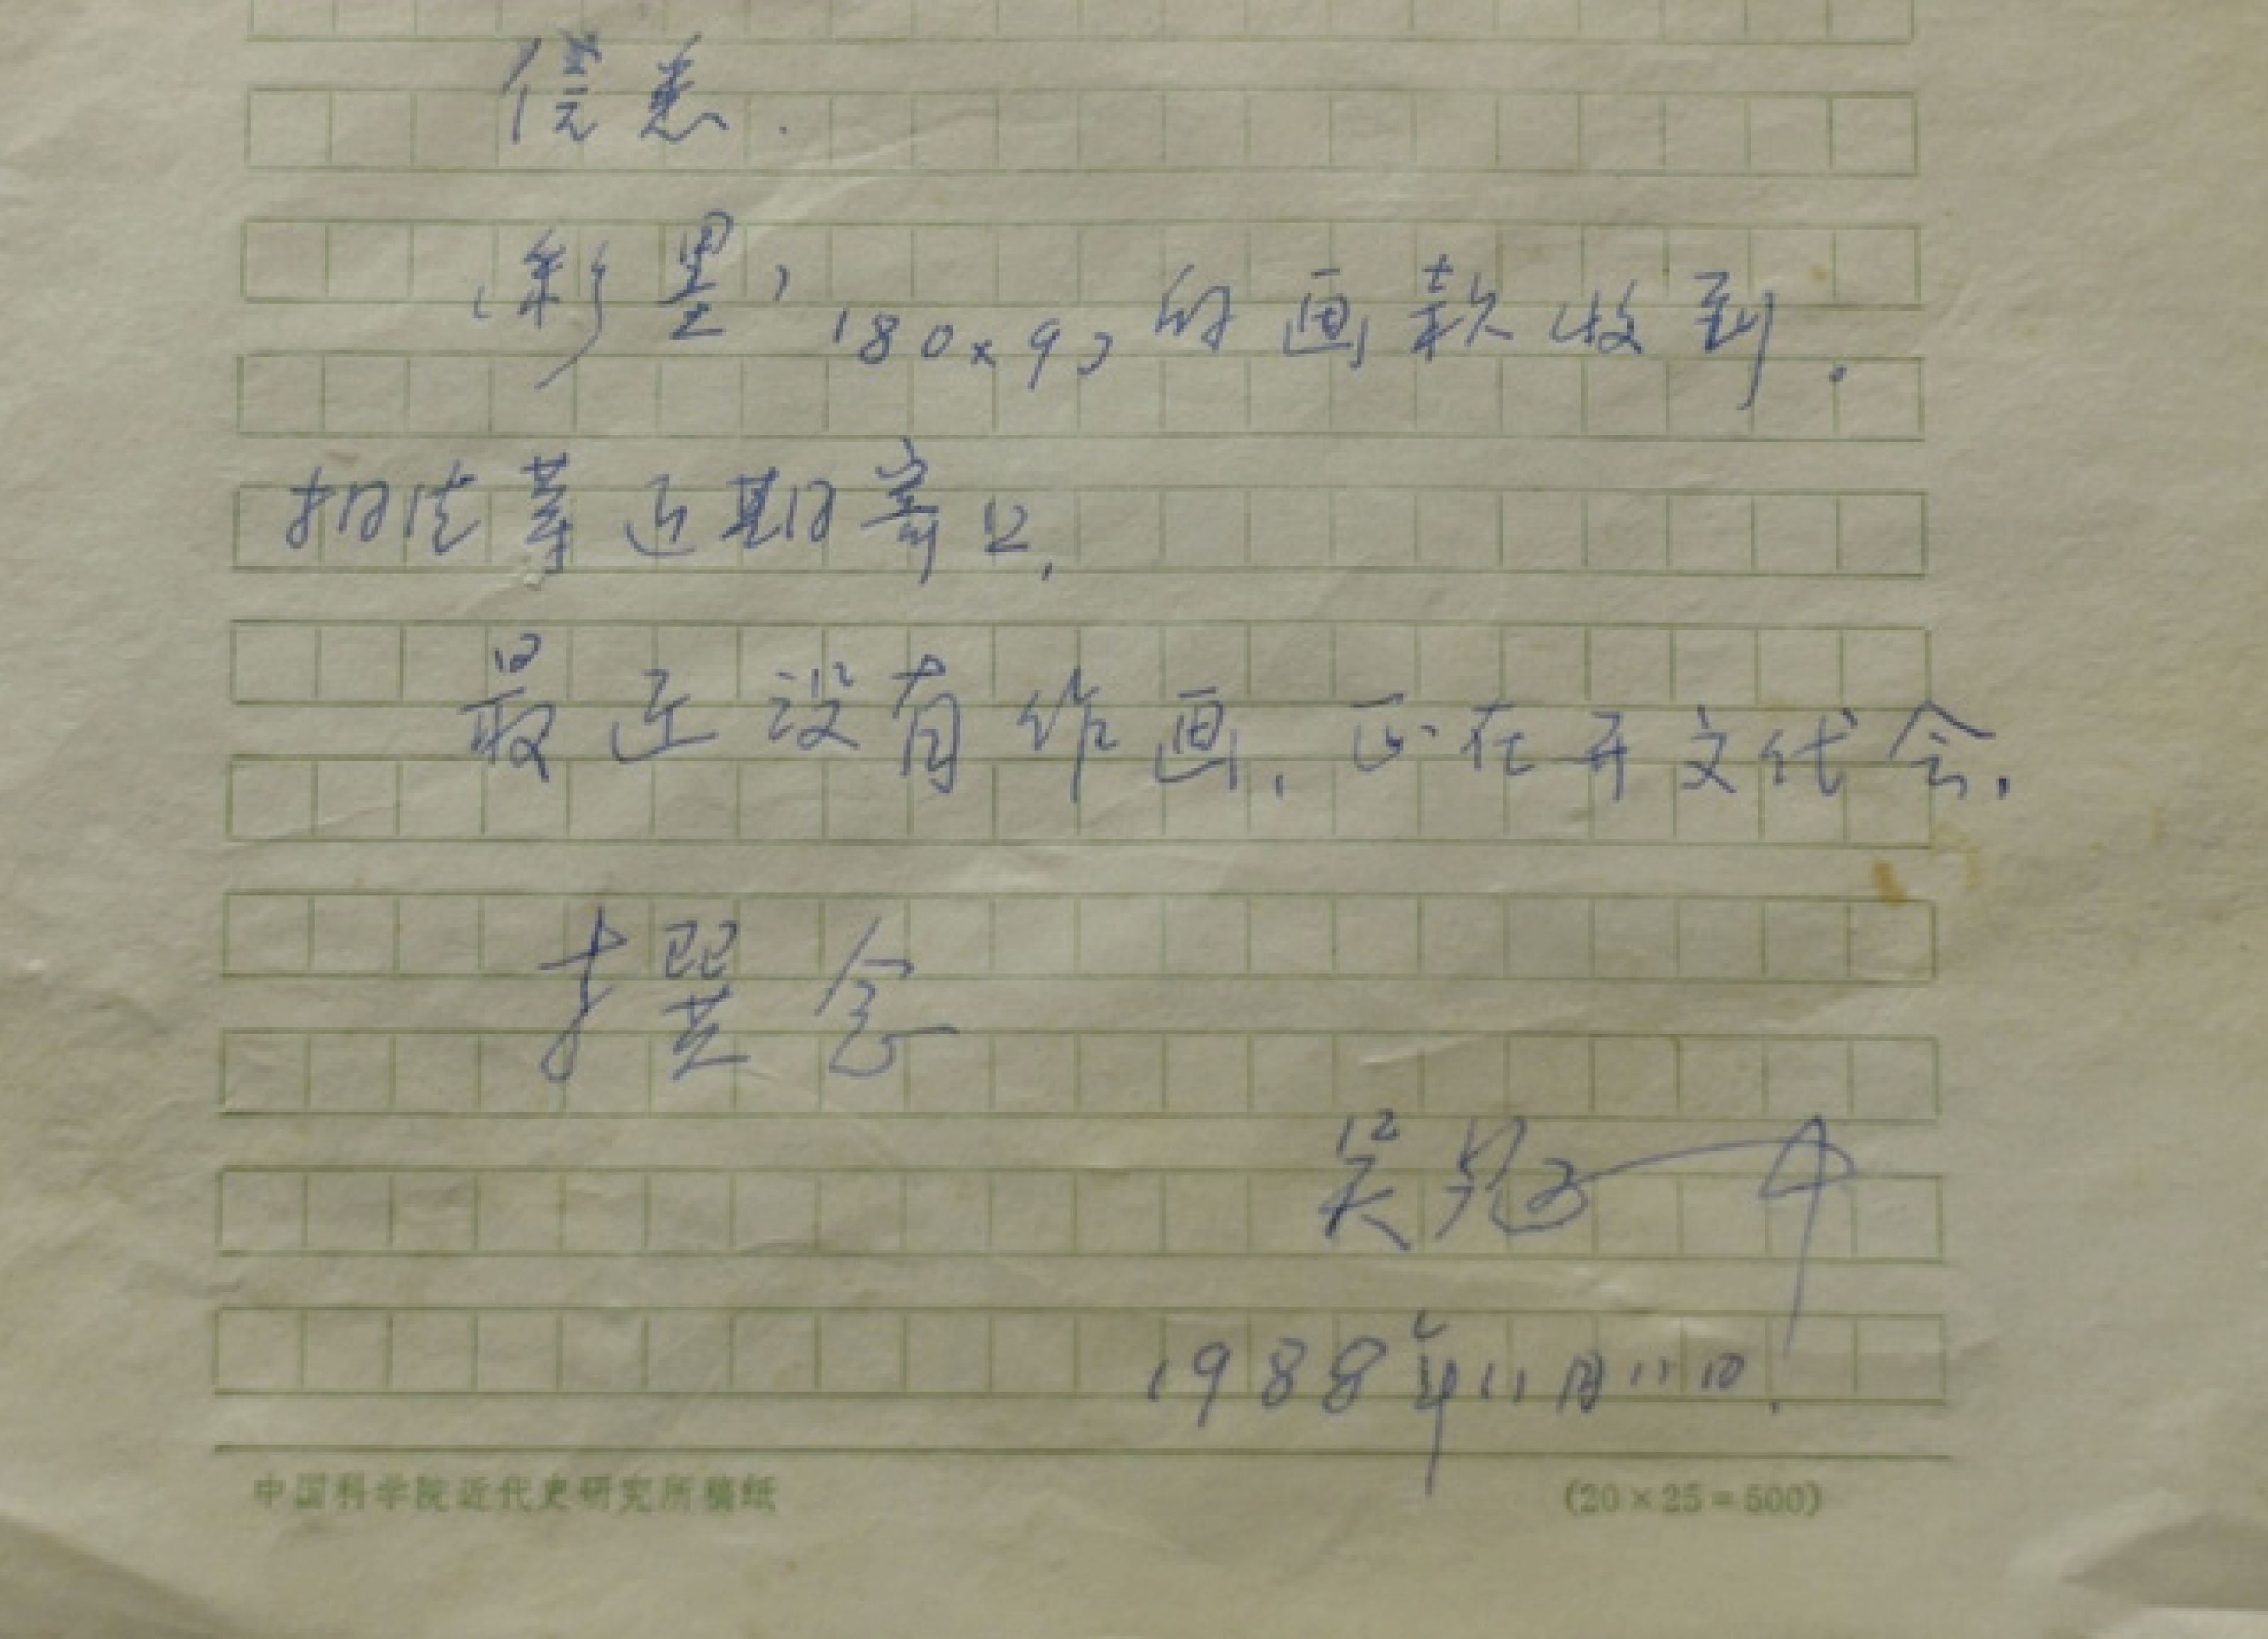 信悉.
《彩墨》180×90的画款收到。
近期寄上.
最近没有作画,正在开文代会.
握 念
吴冠中
1988年11月11日.
中国科学院近代史研究所稿纸
(20×25=500)